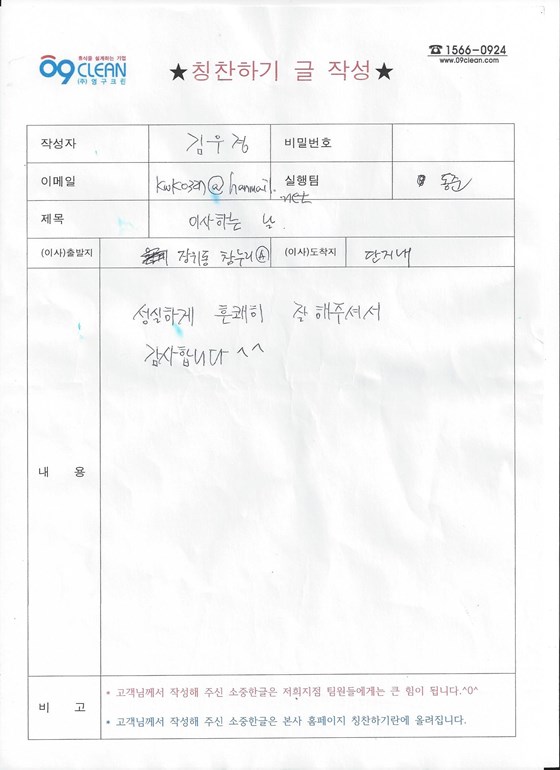 휴식을 설계하는 기업
09 CLEAN
(주)영구크린
★칭찬하기 글 작성★
☎1566-0924
www.09clean.com
작성자 김우정 비밀번호
이메일 @hanmail.net 실행팀 동준
제목 이사하는 날
(이사)출발지 창누리Ⓐ (이사)도착지 단지내
성실하게 흔쾌히 잘 해주셔서
감사합니다 ^^
내 용
비 고
* 고객님께서 작성해 주신 소중한글은 저희지점 팀원들에게는 큰 힘이 됩니다.^0^
* 고객님께서 작성해 주신 소중한글은 본사 홈페이지 칭찬하기란에 올려집니다.